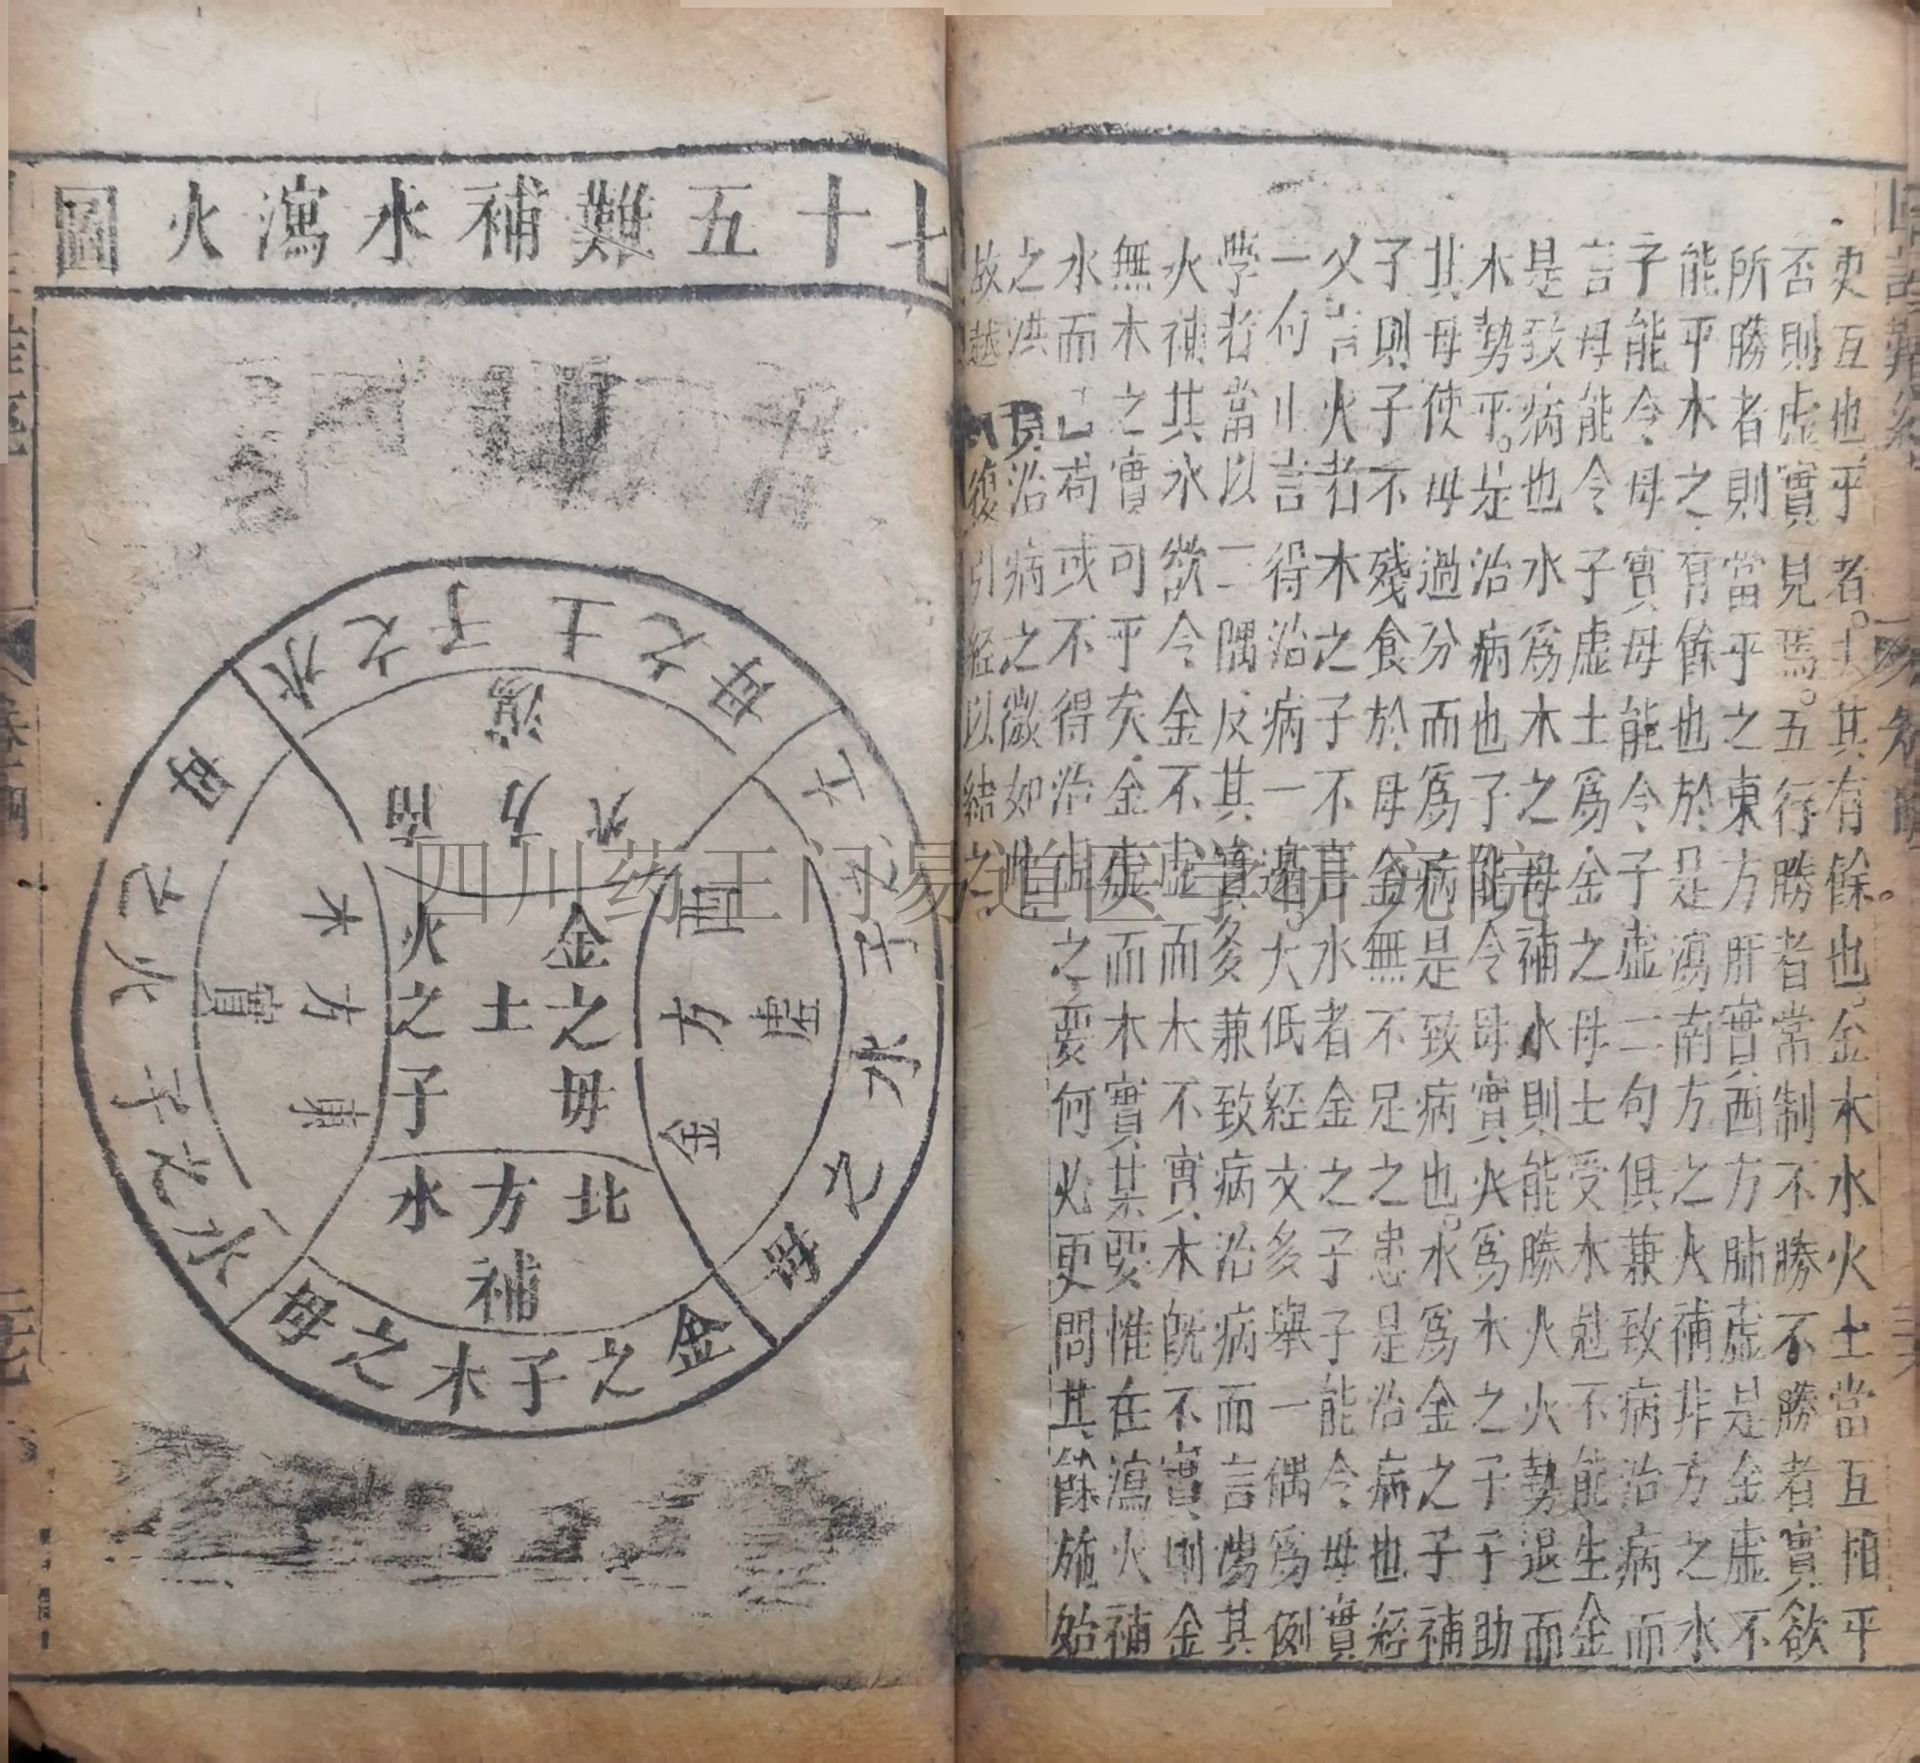 更互也平者。夫其有餘也。金木水火土當互相平
否則虛實見焉。五行勝者常制不勝不勝者實欲
所勝者則當平之東方肝實西方肺虛是金虛不
能平木之有餘也於是瀉南方之火補非方之水
子能令母實母能令子虛二句俱兼致病治病而
言母能令子虛土為金之母土受木尅不能生金
是致病也水為木之母補水則能勝火火勢退而
木勢平。是治病也子能令母實火為木之子子助
其母使母過分而為病是致病也。水為金之子子補
子則子不殘食於母金無不足之患是治病也經
父言火者木之子不言水者金之子子能令母實
一句止言得治病一邊。大低經文多舉一偶為例
學者當以二隅反其真多兼致病治病而言瀉其
火補其水欲令金不虛而木不實木既不實則金
無木之實可平矣金虛而木實其要惟在瀉火補
水而已苟或不得治虛之要何必更問其餘施始
之洪治病之微如此
故越復引經以結之。
七十五難補水瀉火圖
母之土子之水
土之子水之母
金之子木之母
水之子火之母
瀉
火方南
西方金
虛
北方水
補
東方木
實
金之母
土
火之子
四川药王门易道医学研究院